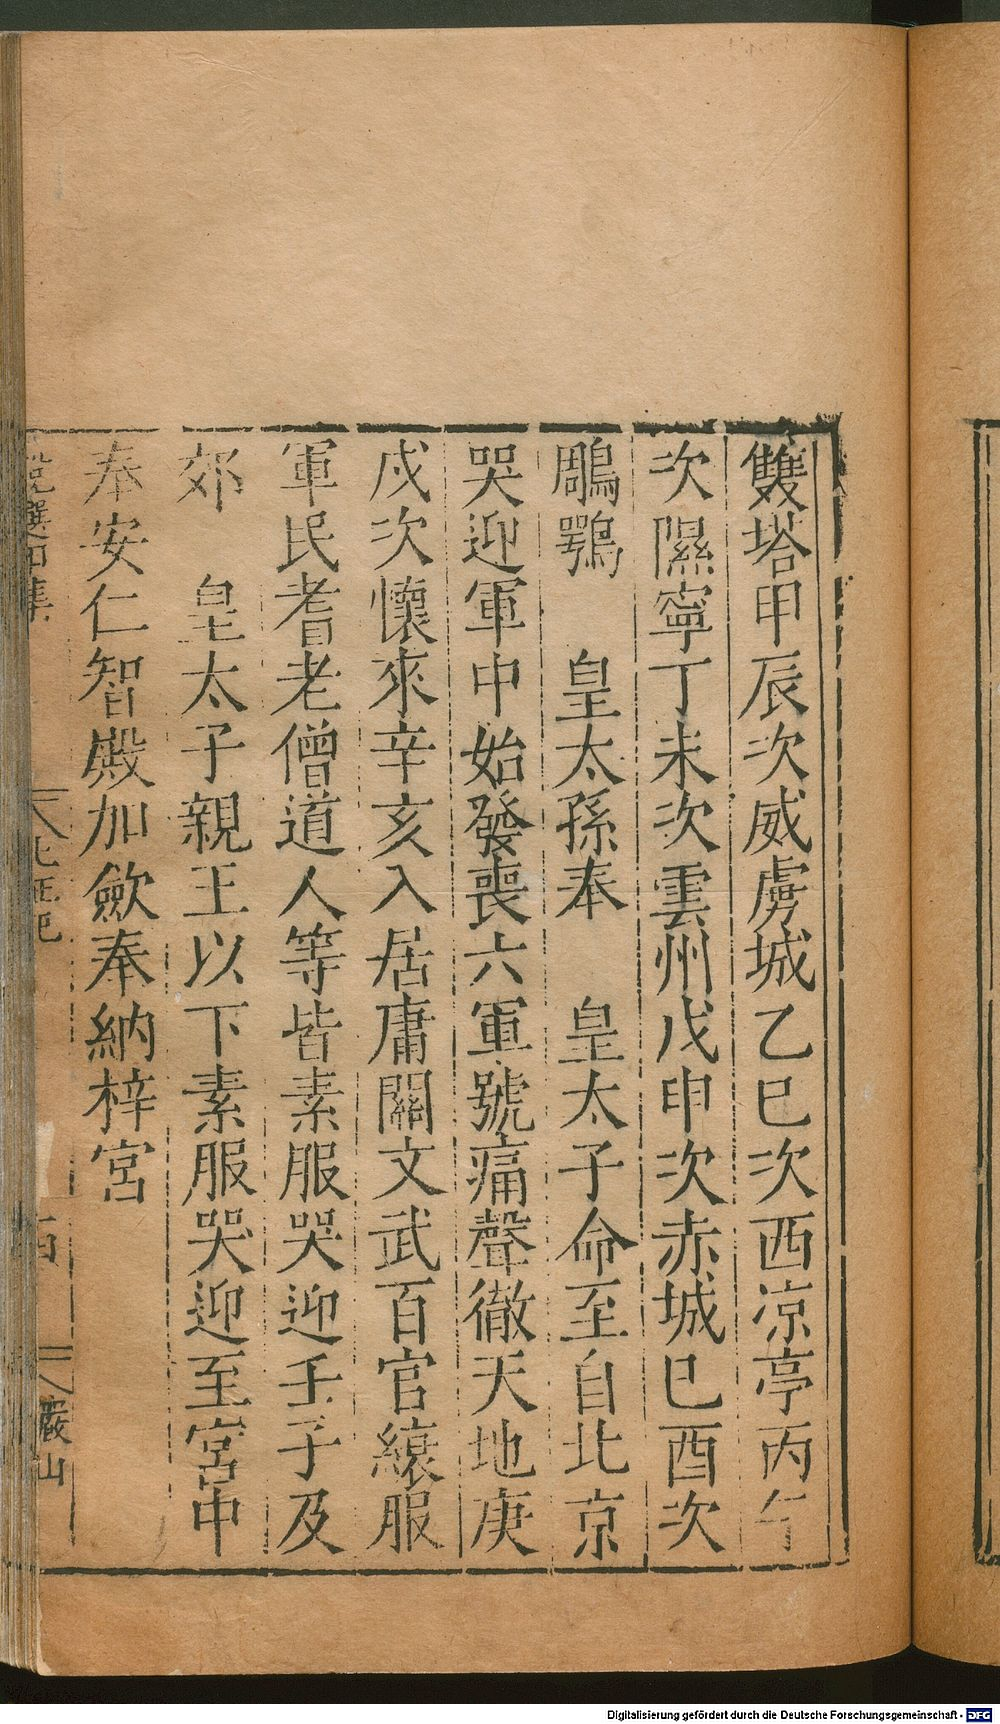 雙塔甲辰次威虜城乙巳次西凉亭丙午
次隰寧丁未次雲州戊申次赤城己酉次
鵰鶚 皇太孫奉 皇太子命至自北京
哭迎軍中始發喪六軍號痛聲徹天地庚
戌次懷來辛亥入居庸關文武百官縗服
軍民耆老僧道人等皆素服哭迎壬子及
郊 皇太子親王以下素服哭迎至宮中
奉安仁智殿加歛奉納梓宮
巖山
Digitalisierung gefördert durch die Deutsche Forschungsgemeinschaft - DFG